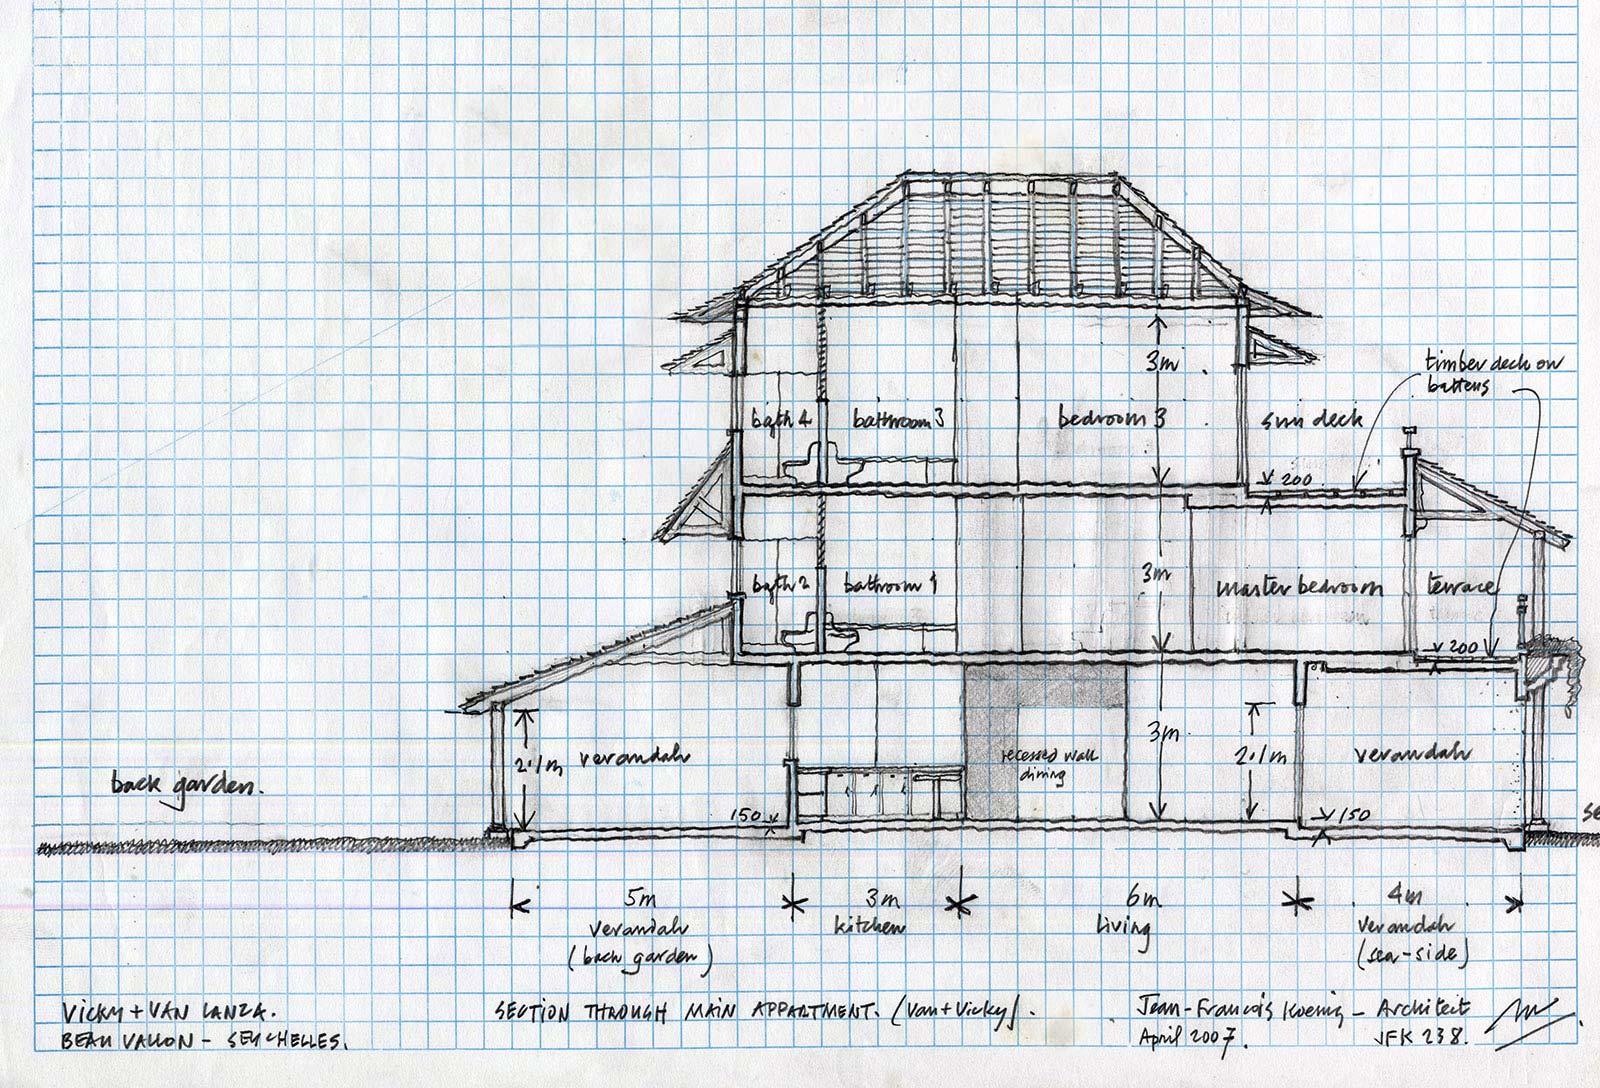 timber deck on
battens
3m
bath 4
bathroom 3
bedroom 3
sun deck
200
3m
bath 2
bathroom 1
master bedroom
terrace
200
3m
2.1m
verandah
recessed wall
dining
2.1m
verandah
back garden.
150
150
5m
3m
6m
4m
verandah
kitchen
living
verandah
(back garden)
(sea-side)
VICKY + VAN LANZA.
SECTION THROUGH MAIN APPARTMENT. (Van+Vicky).
Jean-Francois Koenig - Architect
BEAU VALLON - SEYCHELLES.
April 2007.
JFK 238.